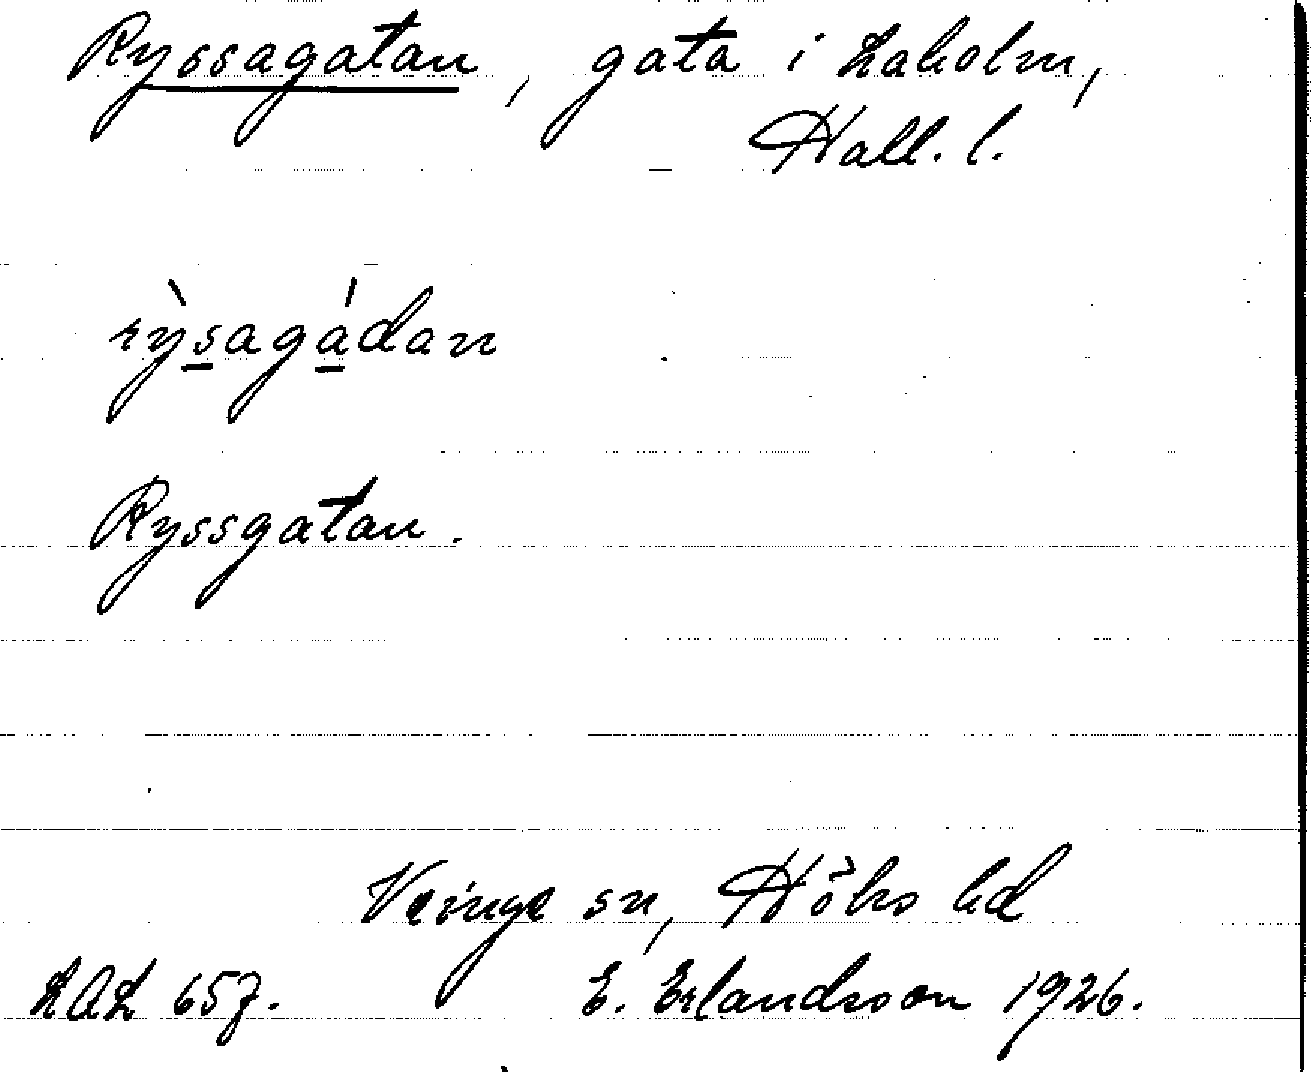 Ryssagatan, gata i Laholm,
Hall. l.
rỳsagádan
Ryssgatan.
Veinge sn, Höks hd
LAL 657. E. Erlandsson 1926.